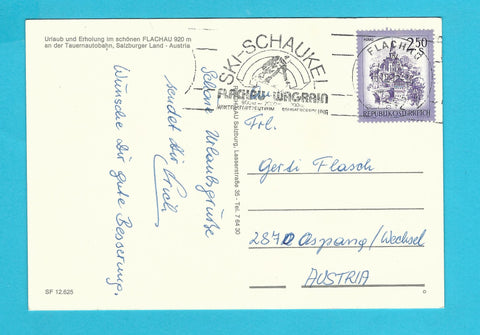 Urlaub und Erholung im schönen FLACHAU 920 m
an der Tauernautobahn, Salzburger Land - Austria
Schöne Urlaubsgrüße
sendet Dir Erich
Wünsche Dir gute Besserung.
SF 12.625
Salzburg, Lasserstraße 35 - Tel. 7 64 30
SKI-SCHAUKEL
FLACHAU-WAGRAIN
FLACHAU
2.50
REPUBLIK ÖSTERREICH
Frl.
Gerdi Flasch
2870 Aspang/Wechsel
AUSTRIA